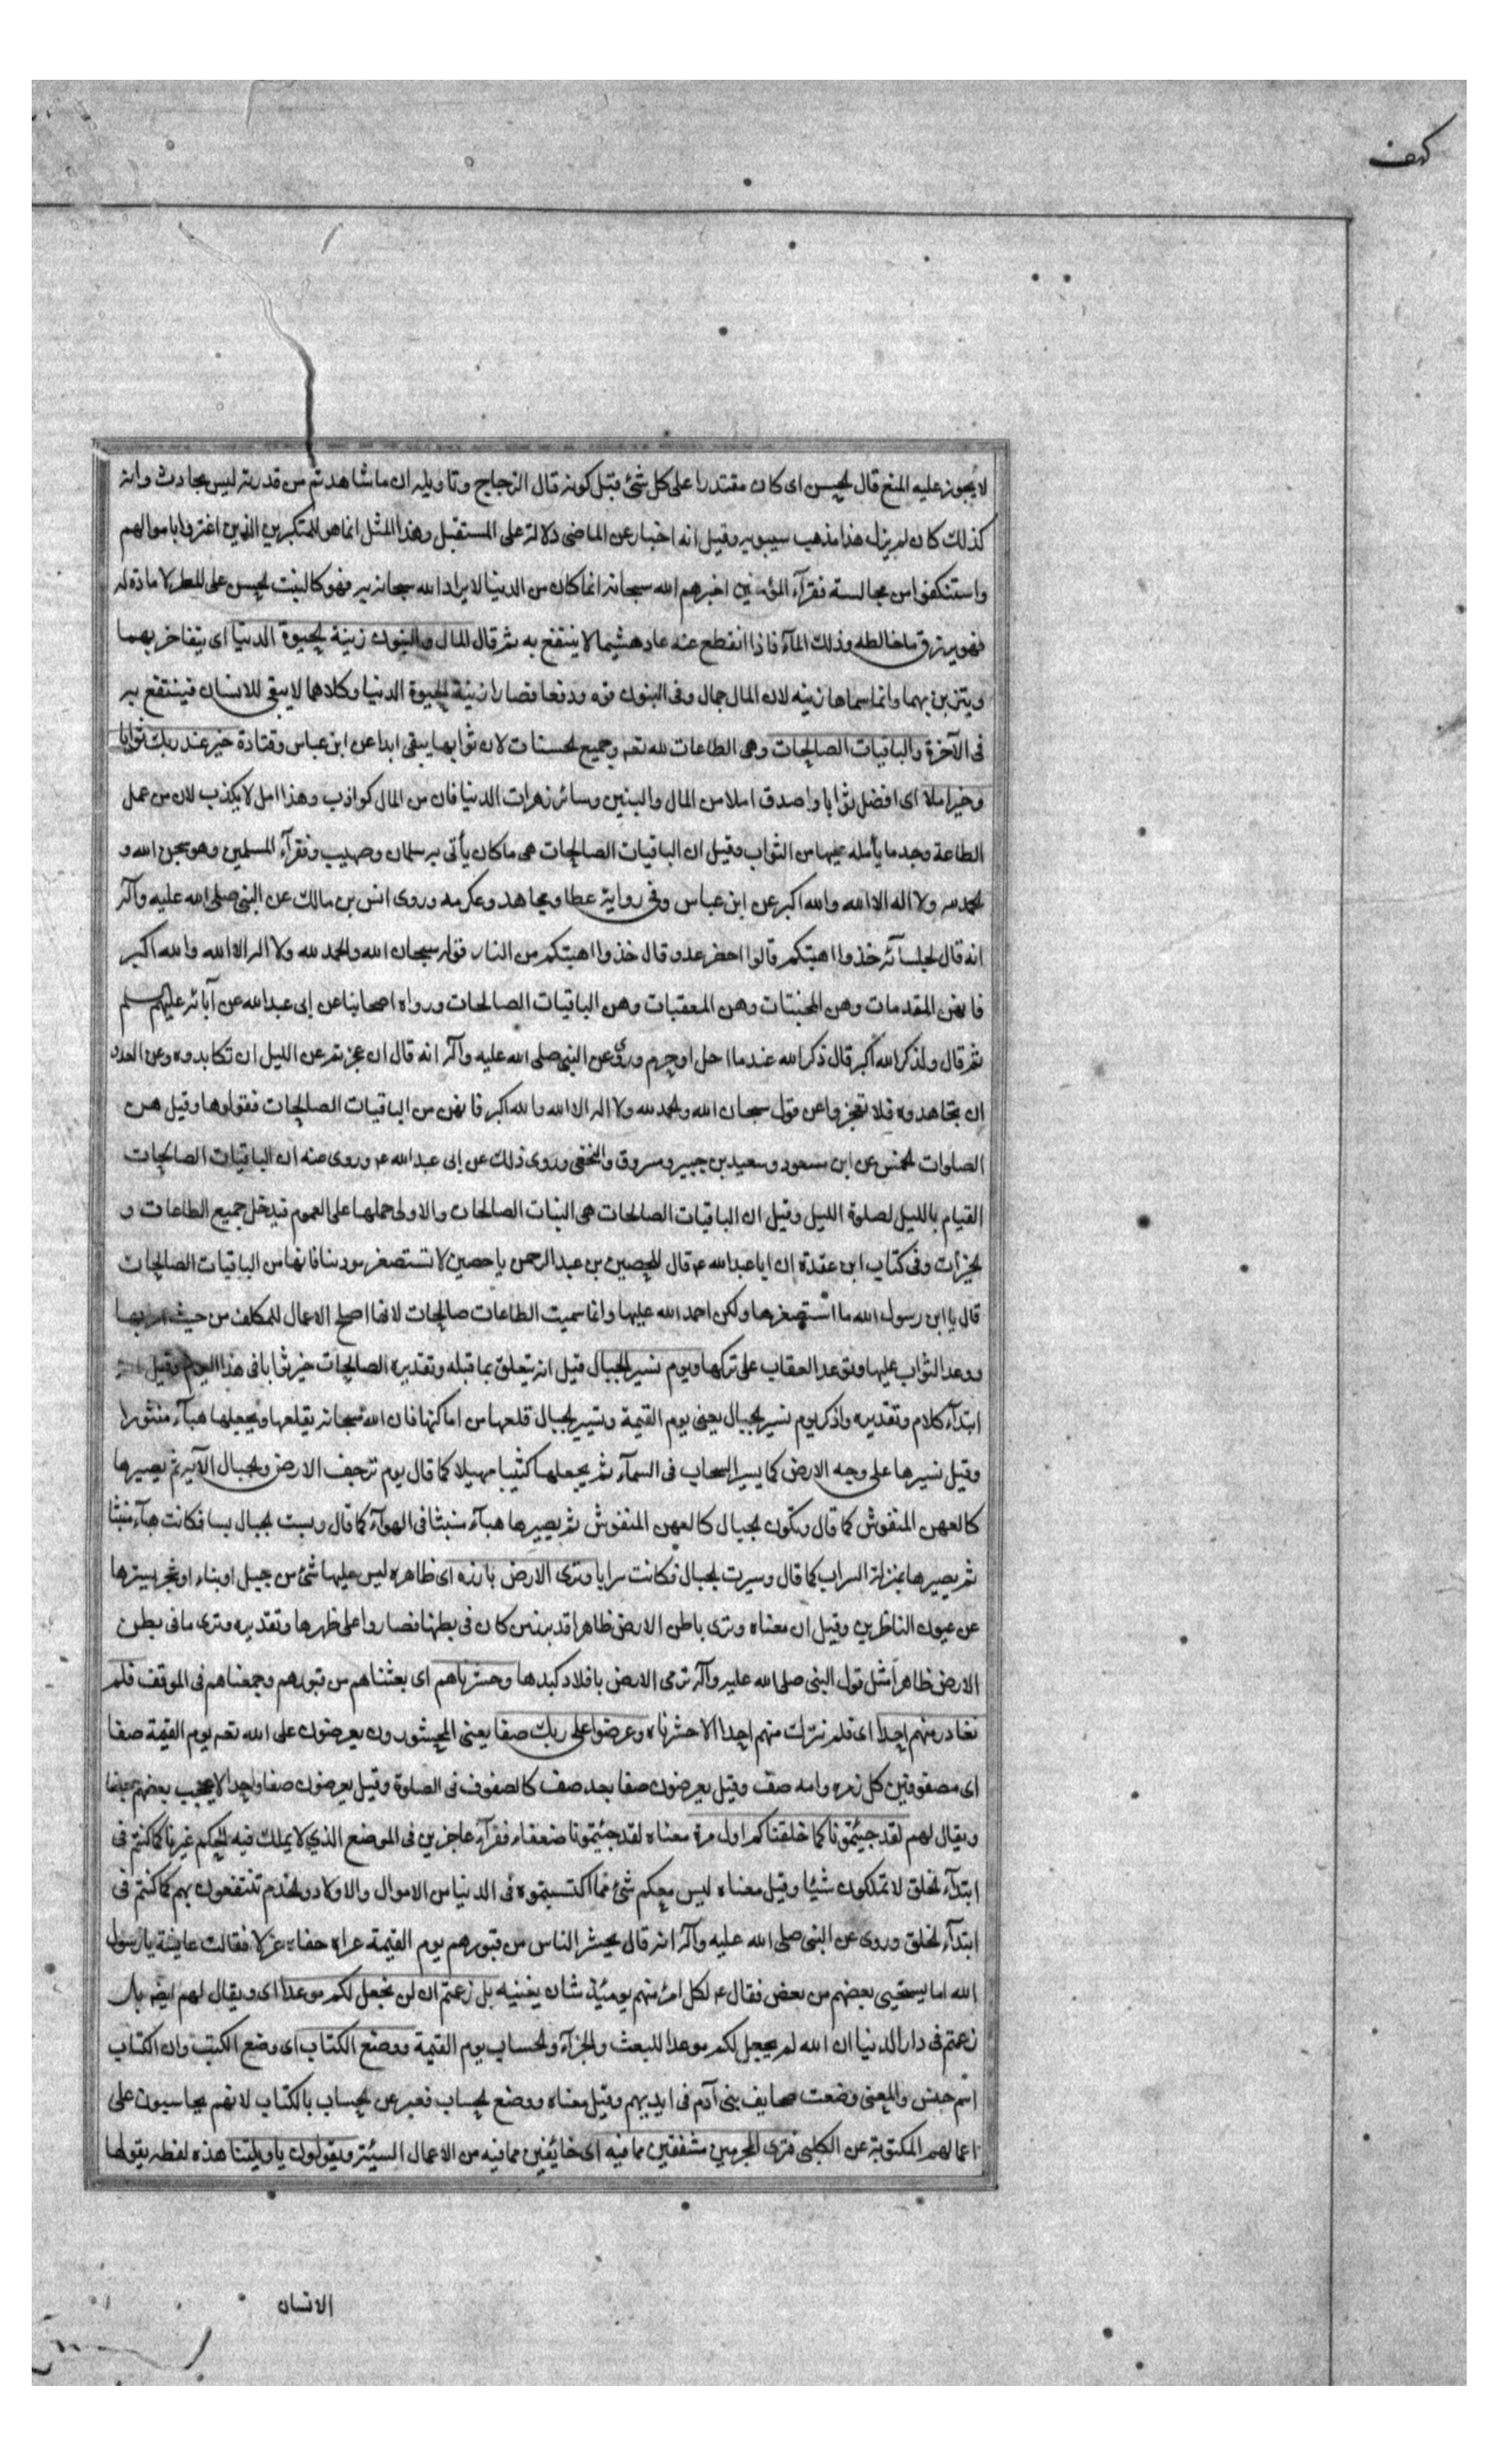 كهف
لا يجوز عليه المنع قال الحسن اى كان مقتدرا على كل شئ قبل كونه قال الزجاج وتاويله ان ما شاهدتم من قدرته ليس بحادث وانه
كذلك كان لم يزل هذا مذهب سيبويه وقيل انه اخبار عن الماضى دلالة على المستقبل وهذا المثل انما هو للمتكبرين الذين اغتروا باموالهم
واستنكفوا من مجالسة فقرآء المؤمنين اخبرهم الله سبحانه انما كان من الدنيا لا يراد الله سبحانه به فهو كالنبت الحسن على المطر لا مادة له
فهو يرتزق ما خالطه وذلك المآء فاذا انقطع عنه عاد هشيما لا ينتفع به ثم قال المال والبنون زينة الحيوة الدنيا اى يتفاخر بهما
ويتزين بهما وانما سماها زينه لان المال جمال وفى البنون قوه ودفعا فصارا زينة الحيوة الدنيا وكلاهما لا يبقى للانسان فينتفع به
فى الآخرة والباقيات الصالحات وهى الطاعات لله تعم وجميع الحسنات لان ثوابها يبقى ابدا عن ابن عباس وقتادة خير عند ربك ثوابا
وخير املا اى افضل ثوابا واصدق املا من المال والبنين وسائر زهرات الدنيا فان من المال كواذب وهذا امل لا يكذب لان من عمل
الطاعة وجد ما يأمله عليها من الثواب وقيل ان الباقيات الصالحات هى ما كان يأتى به سلمان وصهيب وفقرآء المسلمين وهو سبحن الله و
الحمد لله ولا اله الا الله والله اكبر عن ابن عباس وفى رواية عطا ومجاهد وعكرمه وروى انس بن مالك عن النبى صلى الله عليه وآله
انه قال لجلسآئه خذوا اهبتكم قالوا احضر عدو قال خذوا اهبتكم من النار قوله سبحان الله والحمد لله ولا اله الا الله والله اكبر
فانهن المقدمات وهن المجنتات وهن المعقبات وهن الباقيات الصالحات ورواه اصحابنا عن ابى عبدالله عن آبائه عليهم السلم
ثم قال ولذكر الله اكبر قال ذكر الله عندما احل او حرم وروى عن النبى صلى الله عليه وآله انه قال ان عجزتم عن الليل ان تكابدوه وعن العدو
ان تجاهدوه فلا تعجزوا عن قول سبحان الله والحمد لله ولا اله الا الله والله اكبر فانهن من الباقيات الصالحات فقولوها وقيل هن
الصلوات الخمس عن ابن مسعود وسعيد بن جبير ومسروق والنخعى وروى ذلك عن ابى عبدالله ع وروى عنه ان الباقيات الصالحات
القيام بالليل لصلوة الليل وقيل ان الباقيات الصالحات هى البنات الصالحات والاولى حملها على العموم فيدخل جميع الطاعات و
الخيرات وفى كتاب ابن عقدة ان ابا عبدالله ع قال للحصين بن عبدالرحمن يا حصين لا تستصغر مودتنا فانها من الباقيات الصالحات
قال يا ابن رسول الله ما استصغرها ولكن احمد الله عليها وانما سميت الطاعات صالحات لانها اصلح الاعمال للمكلف من حيث امر بها
ووعد الثواب عليها وتوعد العقاب على تركها ويوم نسير الجبال قيل انه يتعلق بما قبله وتقديره الصالحات خير ثوابا فى هذا اليوم وقيل انه
ابتدآء كلام وتقديره واذكر يوم نسير الجبال يعنى يوم القيمة وتسيير الجبال قلعها من اماكنها فان الله سبحانه يقلعها ويجعلها هبآء منثورا
وقيل نسيرها على وجه الارض كما يسير السحاب فى السمآء ثم يجعلها كثيبا مهيلا كما قال يوم ترجف الارض والجبال الآية ثم يصيرها
كالعهن المنفوش كما قال وتكون الجبال كالعهن المنفوش ثم يصيرها هبآء منبثا فى الهوآء كما قال وبست الجبال بسا فكانت هبآء منبثا
ثم يصيرها بمنزلة السراب كما قال وسيرت الجبال فكانت سرابا وترى الارض بارزه اى ظاهره ليس عليها شئ من جبل او بناء او شجر يسترها
عن عيون الناظرين وقيل ان معناه وترى باطن الارض ظاهرا قد برز من كان فى بطنها فصاروا على ظهرها وتقديره وترى ما فى بطن
الارض ظاهرا مثل قول النبى صلى الله عليه وآله ترمى الارض بافلاذ كبدها وحشرناهم اى بعثناهم من قبورهم وجمعناهم فى الموقف فلم
نغادر منهم احدا اى فلم نترك منهم احدا الا حشرناه وعرضوا على ربك صفا يعنى المحشورون يعرضون على الله تعم يوم القيمة صفا
اى مصفوفين كل زمره وامه صف وقيل يعرضون صفا بعد صف كالصفوف فى الصلوة وقيل يعرضون صفا واحدا لا يحجب بعضهم بعضا
ويقال لهم لقد جئتمونا كما خلقناكم اول مرة معناه لقد جئتمونا ضعفاء فقرآء عاجزين فى الموضع الذي لا يملك فيه الحكم غيرنا كما كنتم فى
ابتدآء الخلق لا تملكون شيئا وقيل معناه ليس معكم شئ مما اكتسبتموه فى الدنيا من الاموال والاولاد والخدم تنتفعون بهم كما كنتم فى
ابتدآء الخلق وروى عن النبى صلى الله عليه وآله انه قال يحشر الناس من قبورهم يوم القيمة عراه حفاه غرلا فقالت عايشة يا رسول
الله اما يستحيى بعضهم من بعض فقال ع لكل امرئ منهم يومئذ شان يغنيه بل زعمتم ان لن نجعل لكم موعدا اى ويقال لهم ايضا بل
زعمتم فى دار الدنيا ان الله لم يجعل لكم موعدا للبعث والجزآء والحساب يوم القيمة ووضع الكتاب اى وضع الكتب وان الكتاب
اسم جنس والمعنى وضعت صحايف بنى آدم فى ايديهم وقيل معناه ووضع الحساب فعبر عن الحساب بالكتاب لانهم يحاسبون على
اعمالهم المكتوبة عن الكلبى فترى المجرمين مشفقين مما فيه اى خائفين مما فيه من الاعمال السيئة ويقولون يا ويلتنا هذه لفظه يقولها
الانسان